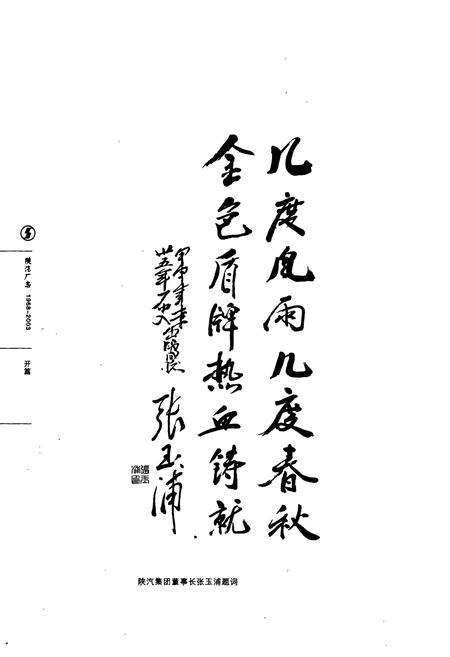 几度风雨几度春秋
金色盾牌热血铸就
张玉浦
陕汽厂志 1968-2003
开篇
陕汽集团董事长张玉浦题词